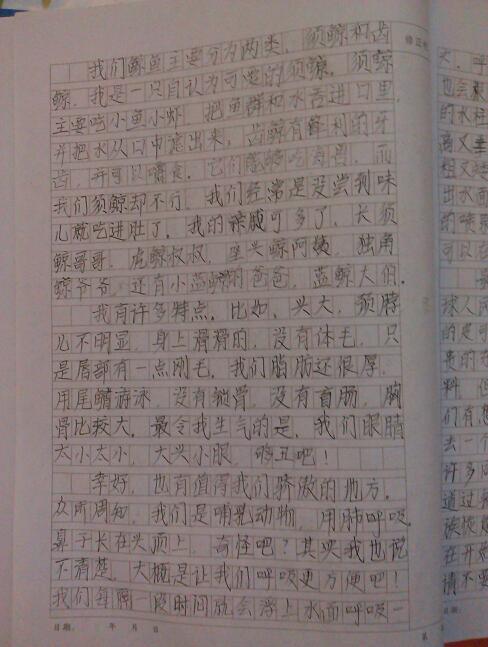 修正
我们鲸鱼主要分为两类，须鲸和齿
鲸，我是一只自认为可爱的须鲸，须鲸
主要吃小鱼小虾，把鱼群和水吞进口里，
并把水从口中滤出来，齿鲸有锋利的牙
齿，并可以嚼食，它们喜吃海兽，而
我们须鲸却不行，我们经常是没尝到味
儿就吃进肚了，我的亲戚可多了，长须
鲸哥哥，虎鲸叔叔，座头鲸阿姨，独角
鲸爷爷，还有小蓝鲸的爸爸，蓝鲸大伯。
我有许多特点，比如，头大，颈脖
儿不明显，身上滑滑的，没有体毛，只
是唇部有一点刚毛，我们脂肪还很厚，
用尾鳍游泳，没有锁骨，没有盲肠，胸
骨比较大，最令我生气的是，我们眼睛
太小太小，大头小眼，够丑吧！
幸好，也有值得我们骄傲的地方，
众所周知，我们是哺乳动物，用肺呼吸，
鼻子长在头顶上，奇怪吧？其实我也说
不清楚，大概是让我们呼吸更方便吧！
我们每隔一段时间就会浮上水面呼吸一
日期： 年 月 日
第
大，呼
也会
的水柱
高又
粗又
出水面
的喷
可以
球人
的是
贵的
料，但
们有
去一个
许多
道过
在开
请不要
日期：